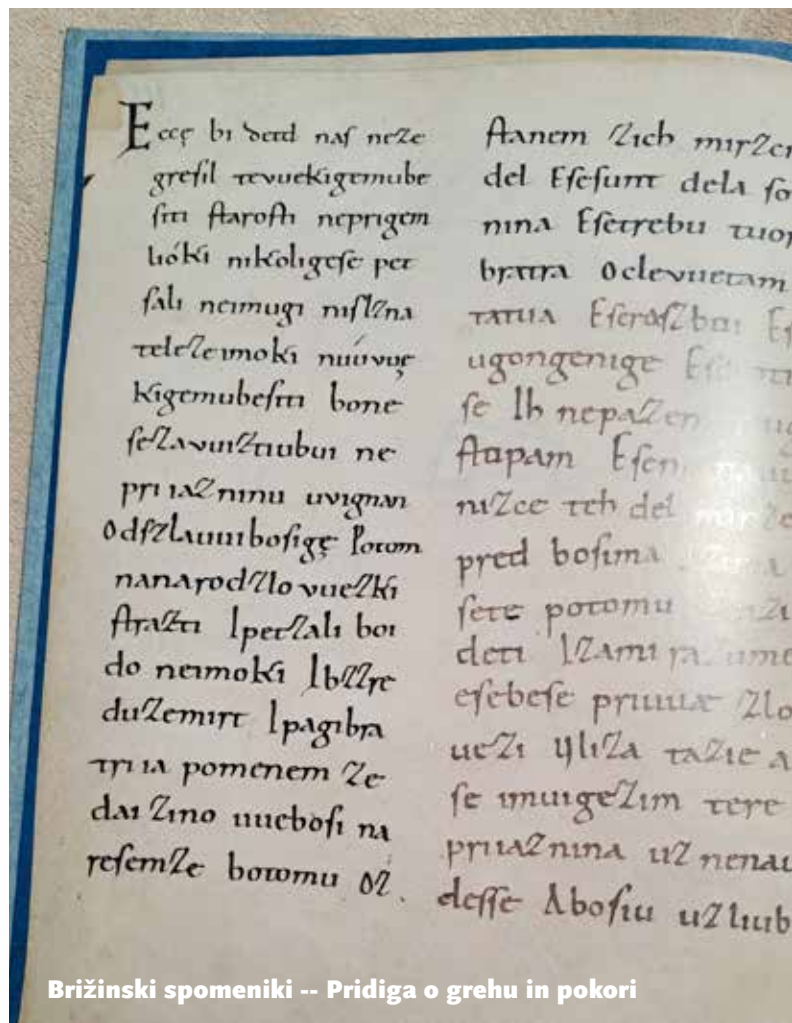 Eccę bi detd naſ neze
greſil tevuekigemube
ſiti ſtaroſti neprigem
lióki nikoligeſe pet
ſali neimugi niſlzna
teleze imoki nuúvvę
kigemubeſiti bone
ſezavuiztiubui ne
priiazninu uvignan
Odſzlauuiboſigę Potom
nanarodzlovuezki
ſtrazti Ipetzali boi
do neimoki Ibzzre
duzemirt Ipagibra
triia pomenem ze
dai zino uueboſi na
reſemze botomu oz
ſtanem zich
del Eſeſunt dela
nina Eſetrebu
bratra Oclevuetam
tatua Eſeroſzboi
ugongenige
ſe Ih
ſtopam
nizce teh del
pred boſima
ſete potomu
deti Izami
eſebeſe priuuæ
uezi Iſliza tazie
ſe imuigezim tere
priiaznina uz
deſſe Aboſiu
Brižinski spomeniki -- Pridiga o grehu in pokori